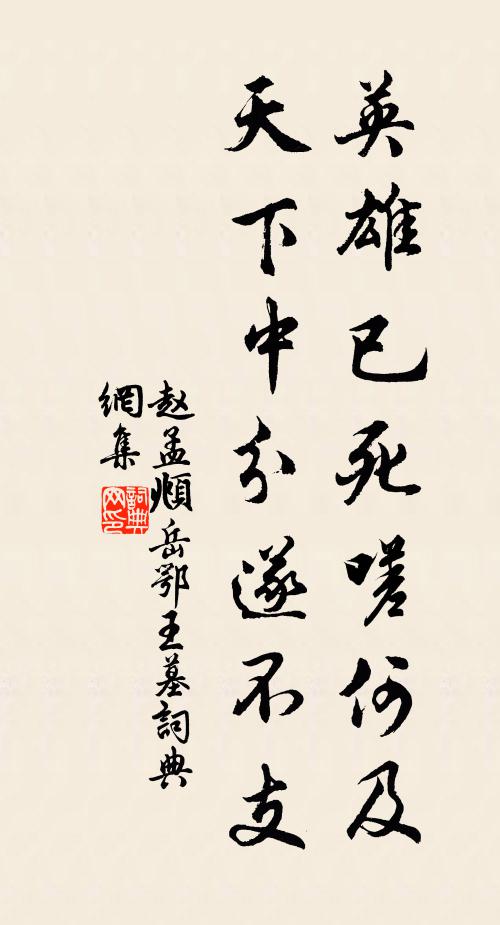 英雄已死嗟何及
天下中分遂不支
赵孟頫岳鄂王墓詞典
網集
詞典
网印